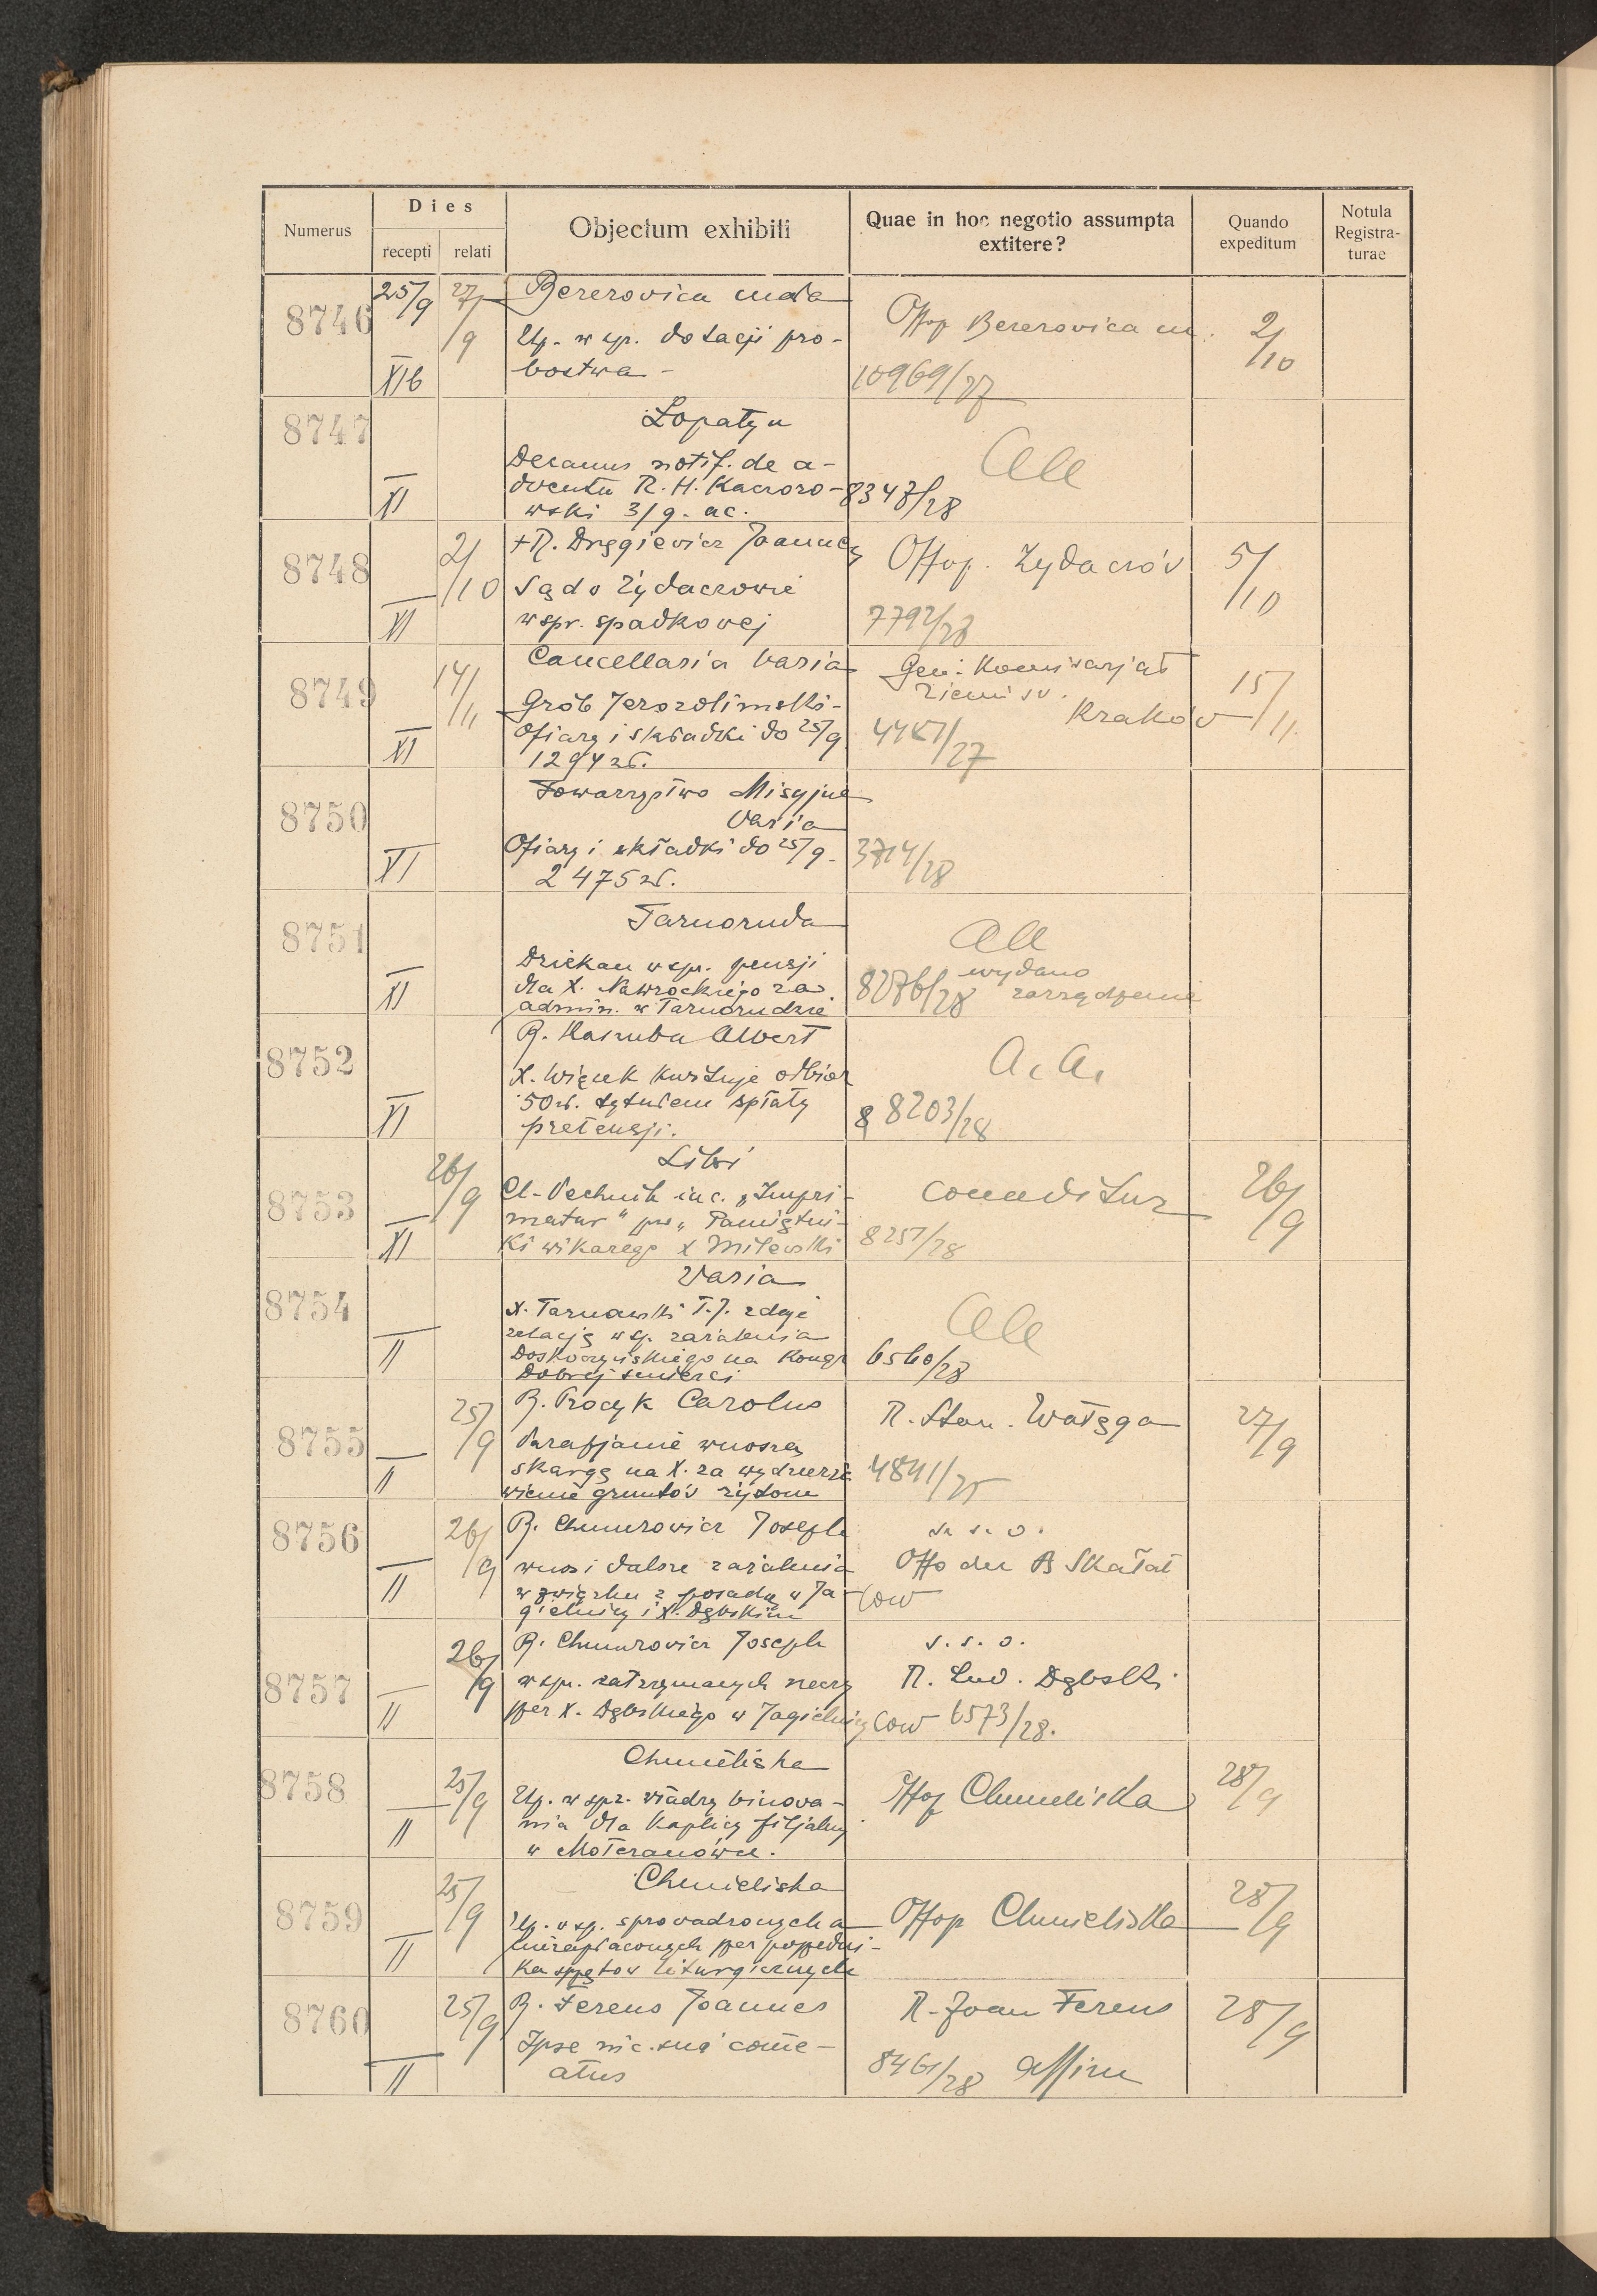 Numerus
Dies
recepti relati
Objectum exhibiti
Quae in hoc negotio assumpta
extitere?
Quando
expeditum
Notula
Registra-
turae
8746
25/9
27/9
XIb
Bererovica mała
Up. w sp. dotacji pro-
bostwa -
Offop Bererovica m.
10969/27
2/10
8747
XI
Łopatyn
Decanus notif. de a-
dventu R. H. Kaczoro-
wski 3/9. ac.
8347/28
8748
2/10
XI
+R. Dręgiewicz Joannes
Sąd o Żydaczowie
w spr. spadkowej
Offop. Żydaczów
7792/28
5/10
8749
14/11
XI
Cancellaria Varia
Grób Jerozolimski-
Ofiary i składki do 25/9
1294 zł.
Gen. Komisarjat
Ziemi św.
Kraków
15/11
8750
XI
Towarzystwo Misyjne
Varia
Ofiary i składki do 25/9.
2475 zł.
3714/28
8751
XI
Tarnoruda
Dziekan w spr. pensji
dla X. Nawrockiego za
admin. w Tarnorudzie
wydano
zarządzenie
8276/28
8752
XI
Albert
X. Więcek kwituje odbiór
50 zł. tytułem spłaty
pretensji.
A. A.
8 8203/28
8753
26/9
XI
Libri
"Impri-
matur" pro "Pamiętni-
ki wikarego X Milewski
8257/28
26/9
8754
II
Varia
X. Tarnawski T.J. zdaje
relację w sp. zażalenia
Doskoczyńskiego na Kongr
Dobrej śmierci
6560/28
8755
25/9
II
R. Procyk Carolus
Parafjanie wnoszą
skargę na X. za wydzierża
wienie gruntów żydom
R. Stan. Wałęga
4841/25
27/9
8756
26/9
II
R. Chmurowicz Joseph
wnosi dalsze zażalenia
w związku z posadą w Ja-
gielnicy i X. Dębskim
s. s. o.
Skałat
8757
26/9
II
R. Chmurowicz Joseph
w spr. zatrzymanych rzeczy
per X. Dębskiego w Jagielnicy
s. s. o.
R. Lud. Dębski
6573/28.
8758
25/9
II
Chmieliska
Up. w spr. władzy binowa-
nia dla kaplicy filjalnej
w Mołczanówce.
Offop Chmieliska
28/9
8759
25/9
II
Chmieliska
Up. w sp. sprowadzonych a
niezapłaconych per poprzedni-
ka sprzętów liturgicznych
Offop Chmieliska
28/9
8760
25/9
II
R. Ferens Joannes
-
atus
R. Joan Ferens
8461/28 affirm
28/9